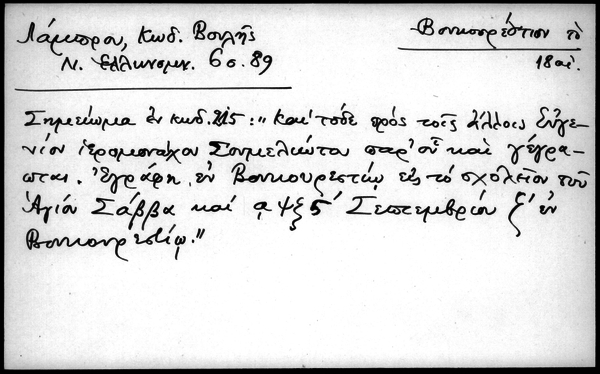 Λάμπρου, Κωδ. Βουλῆς
Βουκουρέστιον τὸ
Ν. Ἑλληνομν. 6 σ. 89
18 αἰ.
Σημείωμα ἐν κωδ. 215: "Καὶ τόδε πρός τοῖς ἄλλοις Εὐγε-
νίου ἱερομονάχου Σουμελιώτου παρ' οὗ καὶ γέγρα-
πται. Ἐγράφη ἐν Βουκουρεστίῳ εἰς τὸ σχολεῖον τοῦ
Ἁγίου Σάββα καὶ αψξς´ Σεπτεμβρίου ζ´ ἐν
Βουκουρεστίῳ."